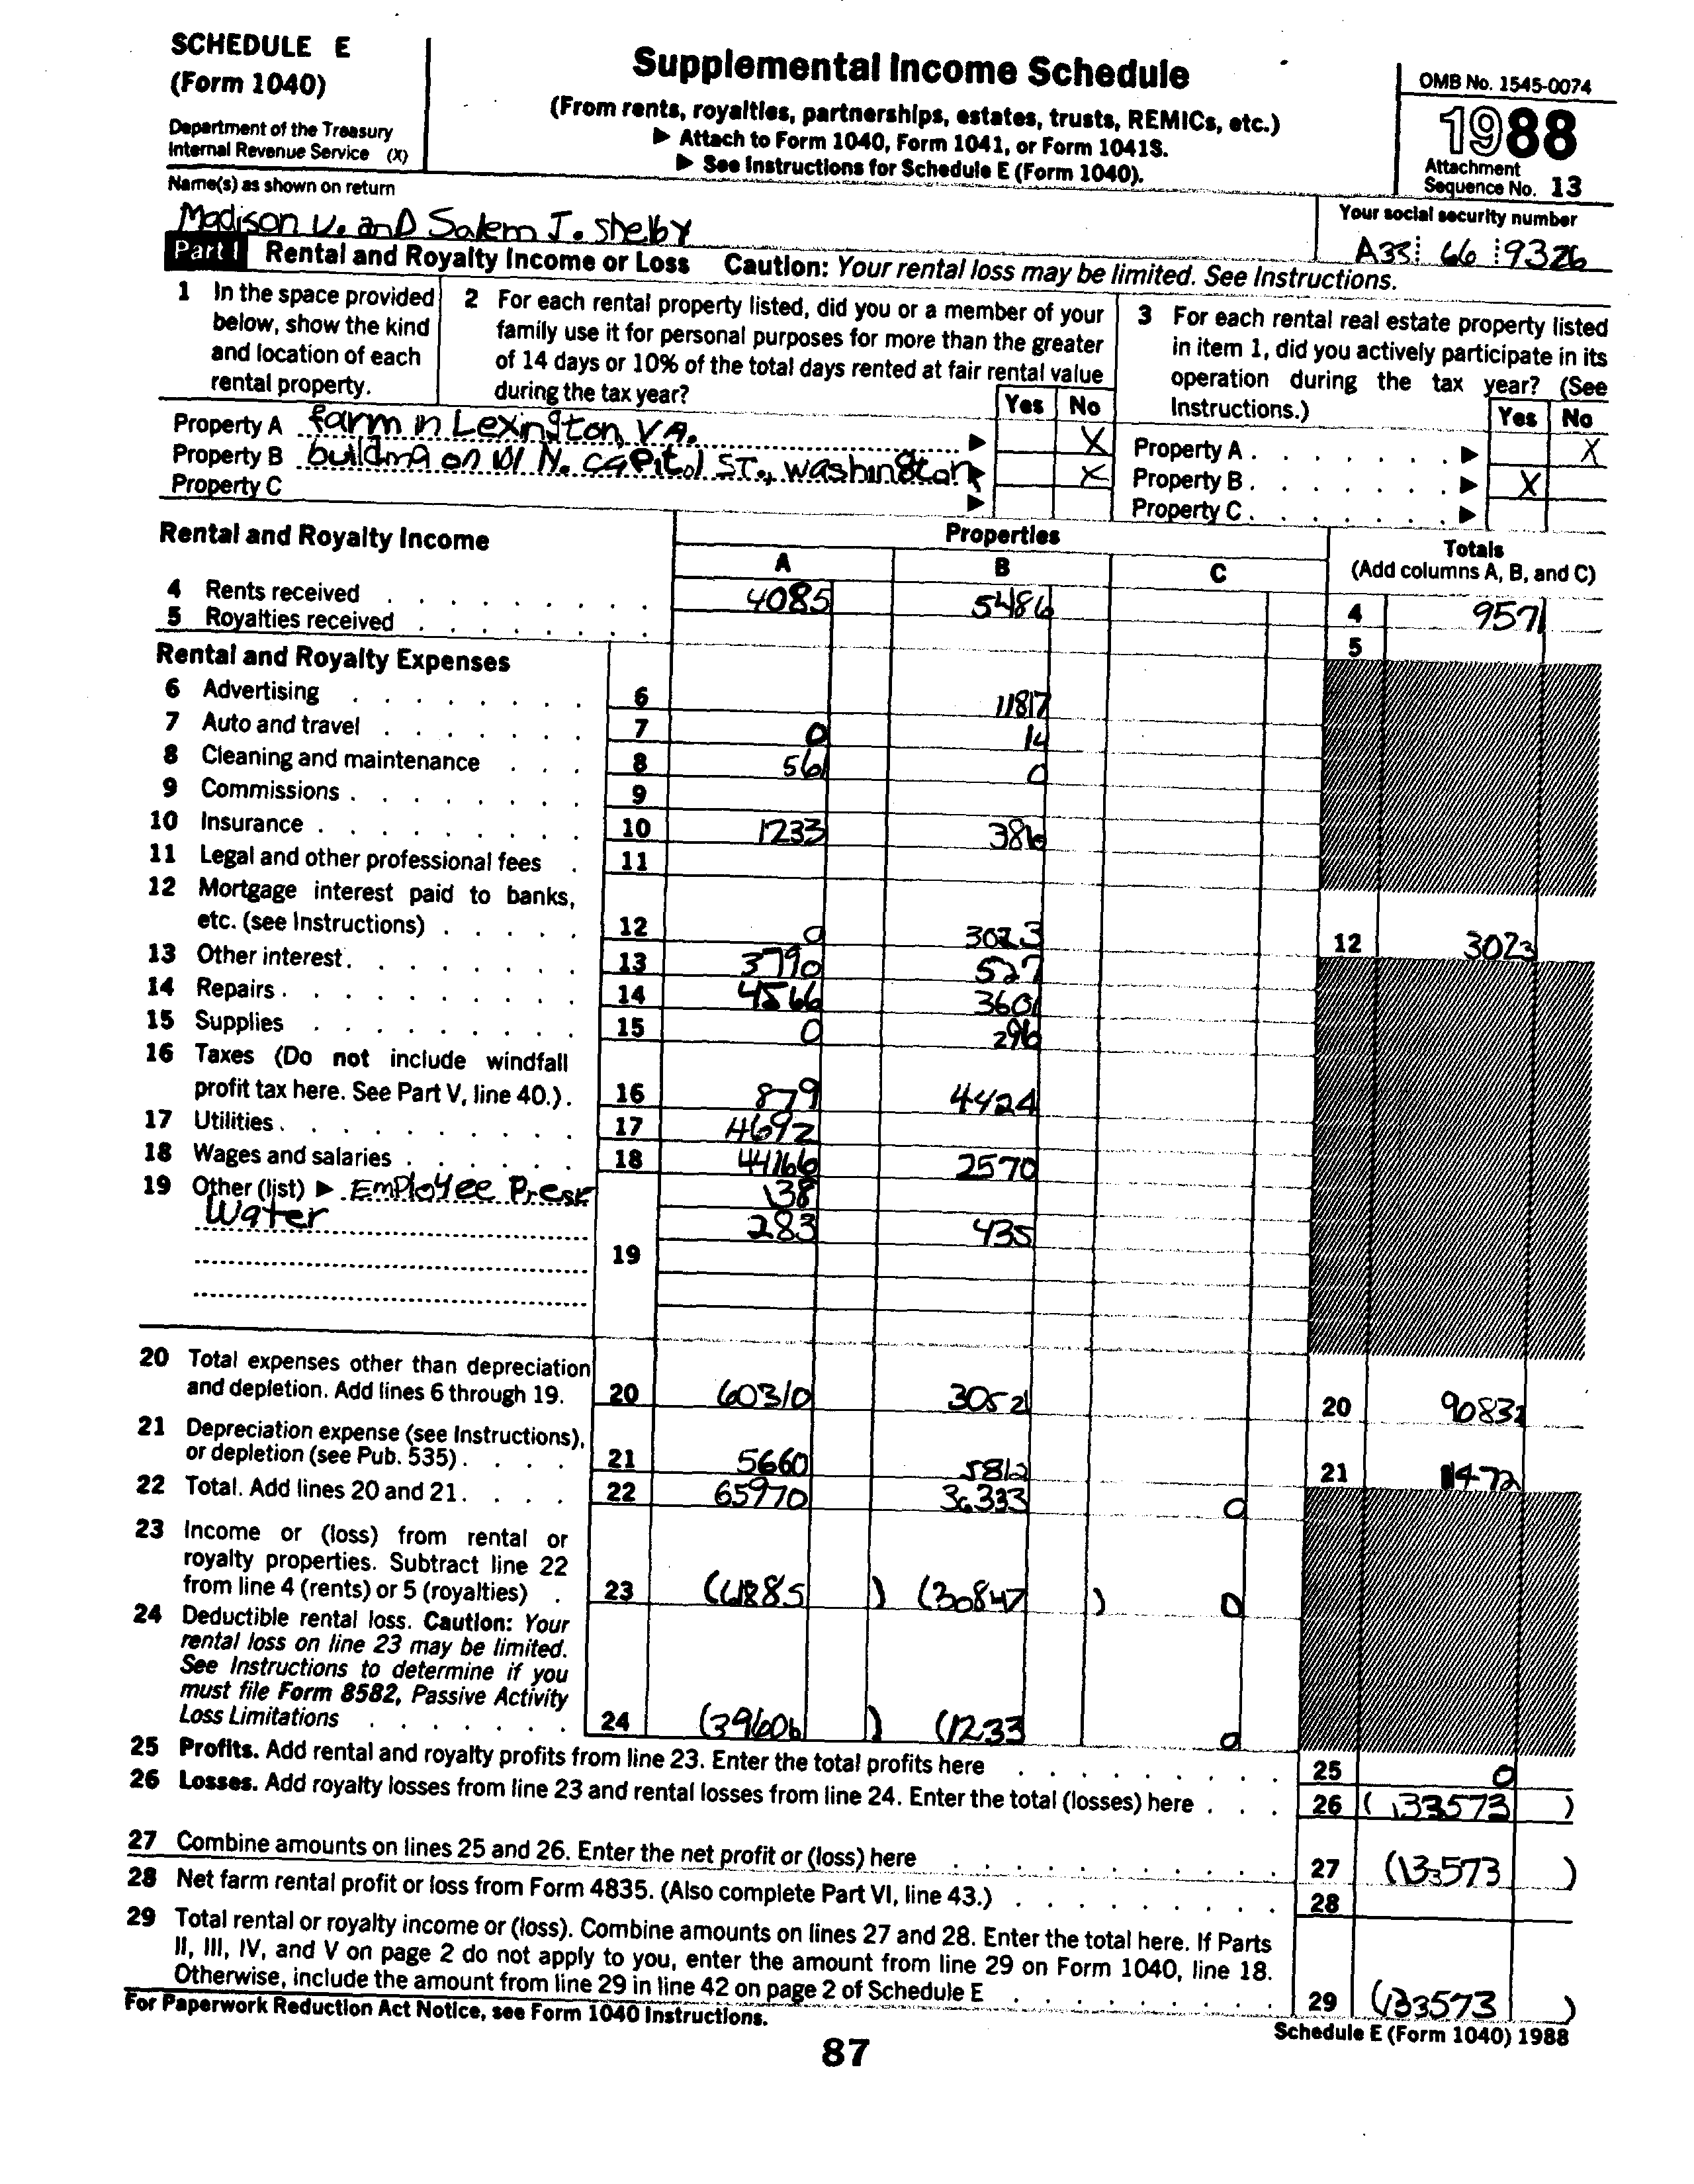 SCHEDULE E
(Form 1040)
Department of the Treasury
Internal Revenue Service (X)
Supplemental Income Schedule
(From rents, royalties, partnerships, estates, trusts, REMICs, etc.)
▶ Attach to Form 1040, Form 1041, or Form 1041S.
▶ See Instructions for Schedule E (Form 1040).
OMB No. 1545-0074
1988
Attachment
Sequence No. 13
Name(s) as shown on return
Madison V. and Salem J. Shelby
Your social security number
A33 66 9326
Part I Rental and Royalty Income or Loss Caution: Your rental loss may be limited. See Instructions.
1 In the space provided
below, show the kind
and location of each
rental property.
2 For each rental property listed, did you or a member of your
family use it for personal purposes for more than the greater
of 14 days or 10% of the total days rented at fair rental value
during the tax year?
3 For each rental real estate property listed
in item 1, did you actively participate in its
operation during the tax year? (See
Instructions.)
Yes No
Yes No
Property A farm in Lexington, VA. ▶ X
Property A ▶ X
Property B building on 101 N. Capitol ST., Washington ▶ X
Property B ▶ X
Property C ▶
Property C ▶
Rental and Royalty Income
Properties
A B C
Totals
(Add columns A, B, and C)
4 Rents received 4085 5486 4 9571
5 Royalties received 5
Rental and Royalty Expenses
6 Advertising 6 11817
7 Auto and travel 7 0 14
8 Cleaning and maintenance 8 561 0
9 Commissions 9
10 Insurance 10 1233 386
11 Legal and other professional fees 11
12 Mortgage interest paid to banks,
etc. (see Instructions) 12 0 3023 12 3023
13 Other interest 13 3790 527
14 Repairs 14 4566 3601
15 Supplies 15 0 296
16 Taxes (Do not include windfall
profit tax here. See Part V, line 40.) 16 879 4424
17 Utilities 17 4692
18 Wages and salaries 18 44166 2570
19 Other (list) ▶ Employee Presr 138
Water 283 435
19
20 Total expenses other than depreciation
and depletion. Add lines 6 through 19. 20 60310 3052 20 90832
21 Depreciation expense (see Instructions),
or depletion (see Pub. 535) 21 5660 5812 21 11472
22 Total. Add lines 20 and 21. 22 65970 36333 0
23 Income or (loss) from rental or
royalty properties. Subtract line 22
from line 4 (rents) or 5 (royalties) 23 (61885 ) (30847 ) 0
24 Deductible rental loss. Caution: Your
rental loss on line 23 may be limited.
See Instructions to determine if you
must file Form 8582, Passive Activity
Loss Limitations 24 (39606 ) (1233 0
25 Profits. Add rental and royalty profits from line 23. Enter the total profits here 25 0
26 Losses. Add royalty losses from line 23 and rental losses from line 24. Enter the total (losses) here 26 ( 133573 )
27 Combine amounts on lines 25 and 26. Enter the net profit or (loss) here 27 (133573 )
28 Net farm rental profit or loss from Form 4835. (Also complete Part VI, line 43.) 28
29 Total rental or royalty income or (loss). Combine amounts on lines 27 and 28. Enter the total here. If Parts
II, III, IV, and V on page 2 do not apply to you, enter the amount from line 29 on Form 1040, line 18.
Otherwise, include the amount from line 29 in line 42 on page 2 of Schedule E 29 (133573 )
For Paperwork Reduction Act Notice, see Form 1040 Instructions.
Schedule E (Form 1040) 1988
87